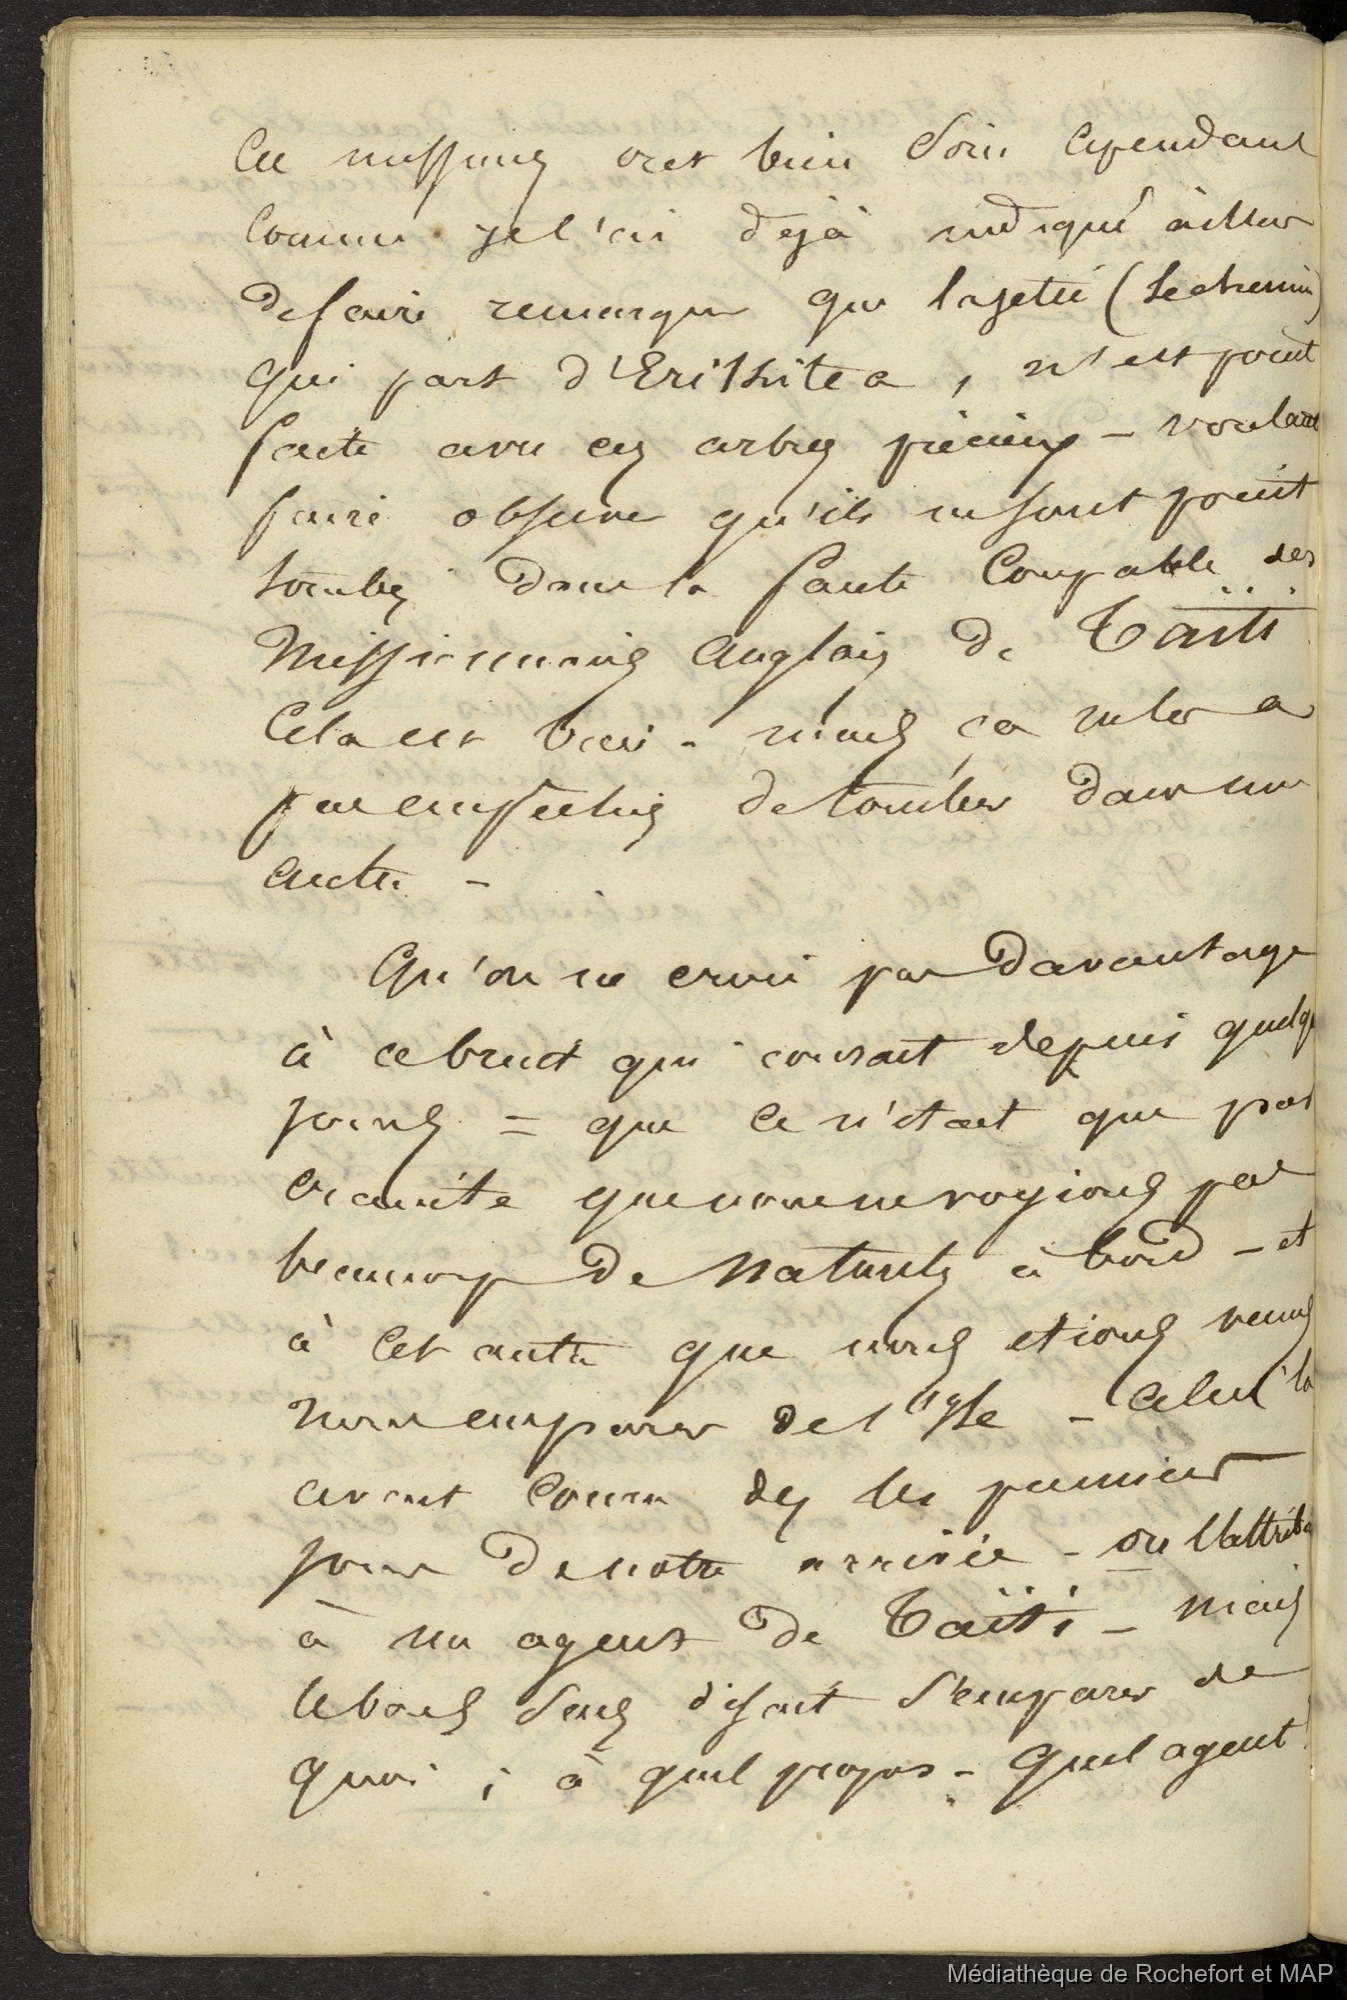 Ces missions ont bien soin cependant
comme je l'ai dejà indiqué ailleur
de faire remarquer que la jetée (le chemin)
qui part d'Erikitea, n'est point
faite avec ces arbres précieux - voulant
faire observer qu'ils ne sont point
tombés dans la faute coupable des
Missionnaires anglais de Taïti
Cela est bien - mais ça ne les a
pas empechés de tomber dans une
autre -
Qu'on ne croie pas davantage
à ce bruit qui courait depuis quelq
jours = que ce n'etait que par
crainte que nous ne voyions pas
beaucoup de naturels à bord - et
à cet autre que nous etions venus
nous emparer de l'ysle - celui là
avait couru des les premiers
jours de notre arrivée - on l'attribu
à un agent de Taïti - mais
le bons sens disait s'emparer de
quoi ; à quel propos - quel agent
Médiathèque de Rochefort et MAP